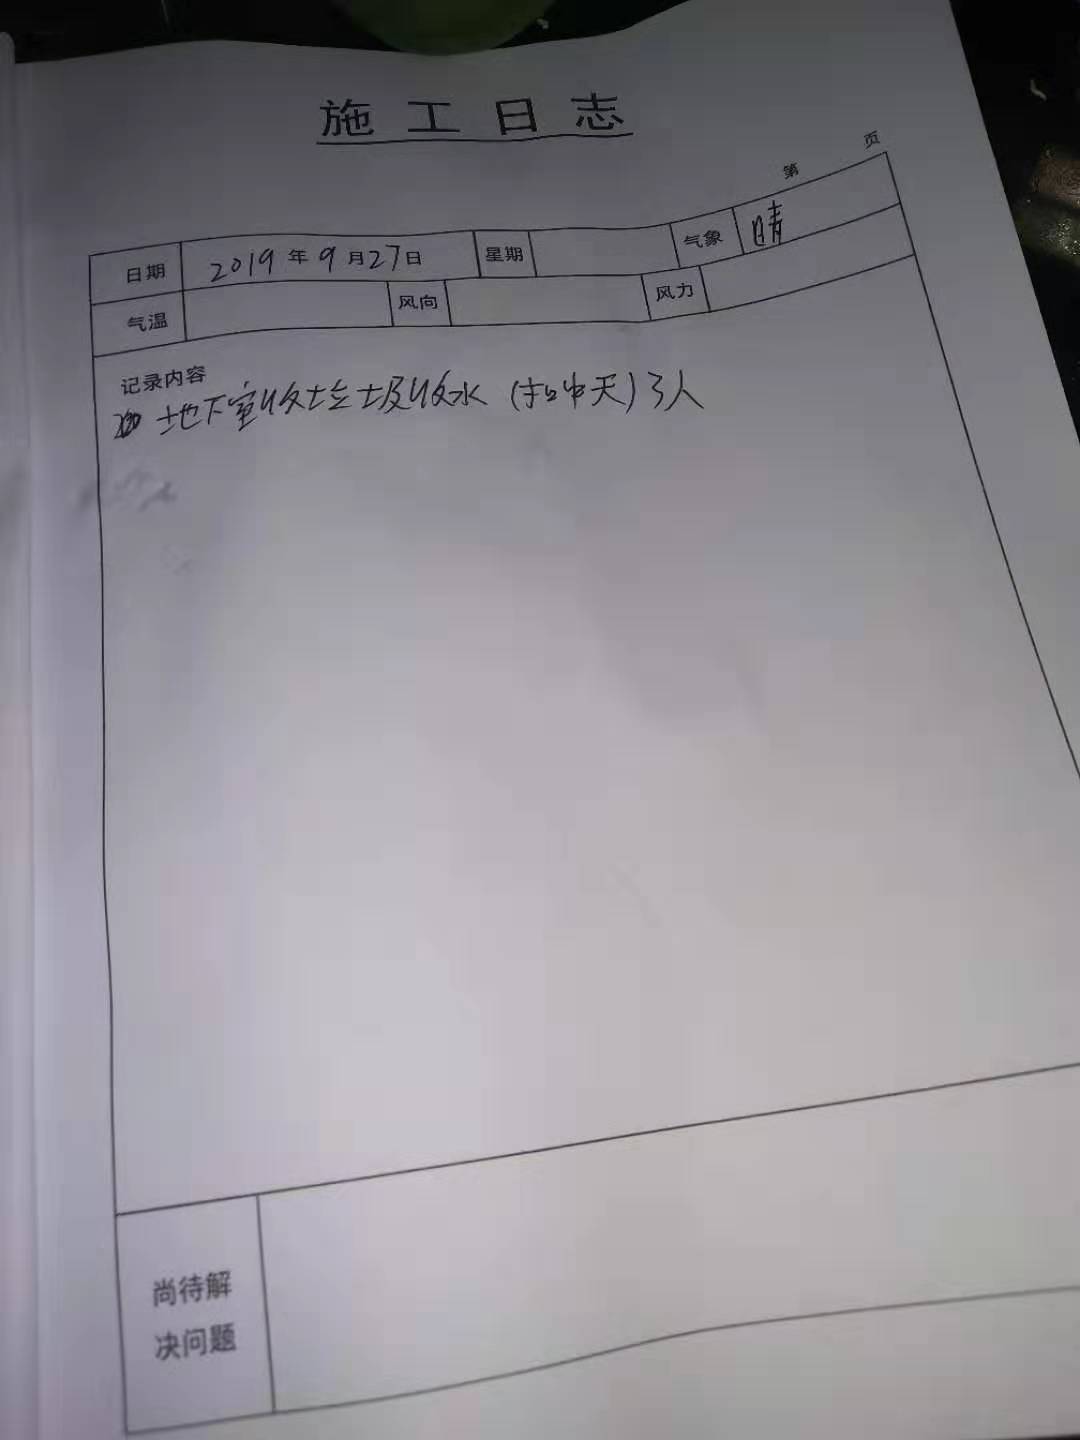 施工日志
第 页
日期 2019年9月27日 星期 气象 晴
气温 风向 风力
记录内容
地下室收垃圾收水 (扣半天) 3人
尚待解
决问题